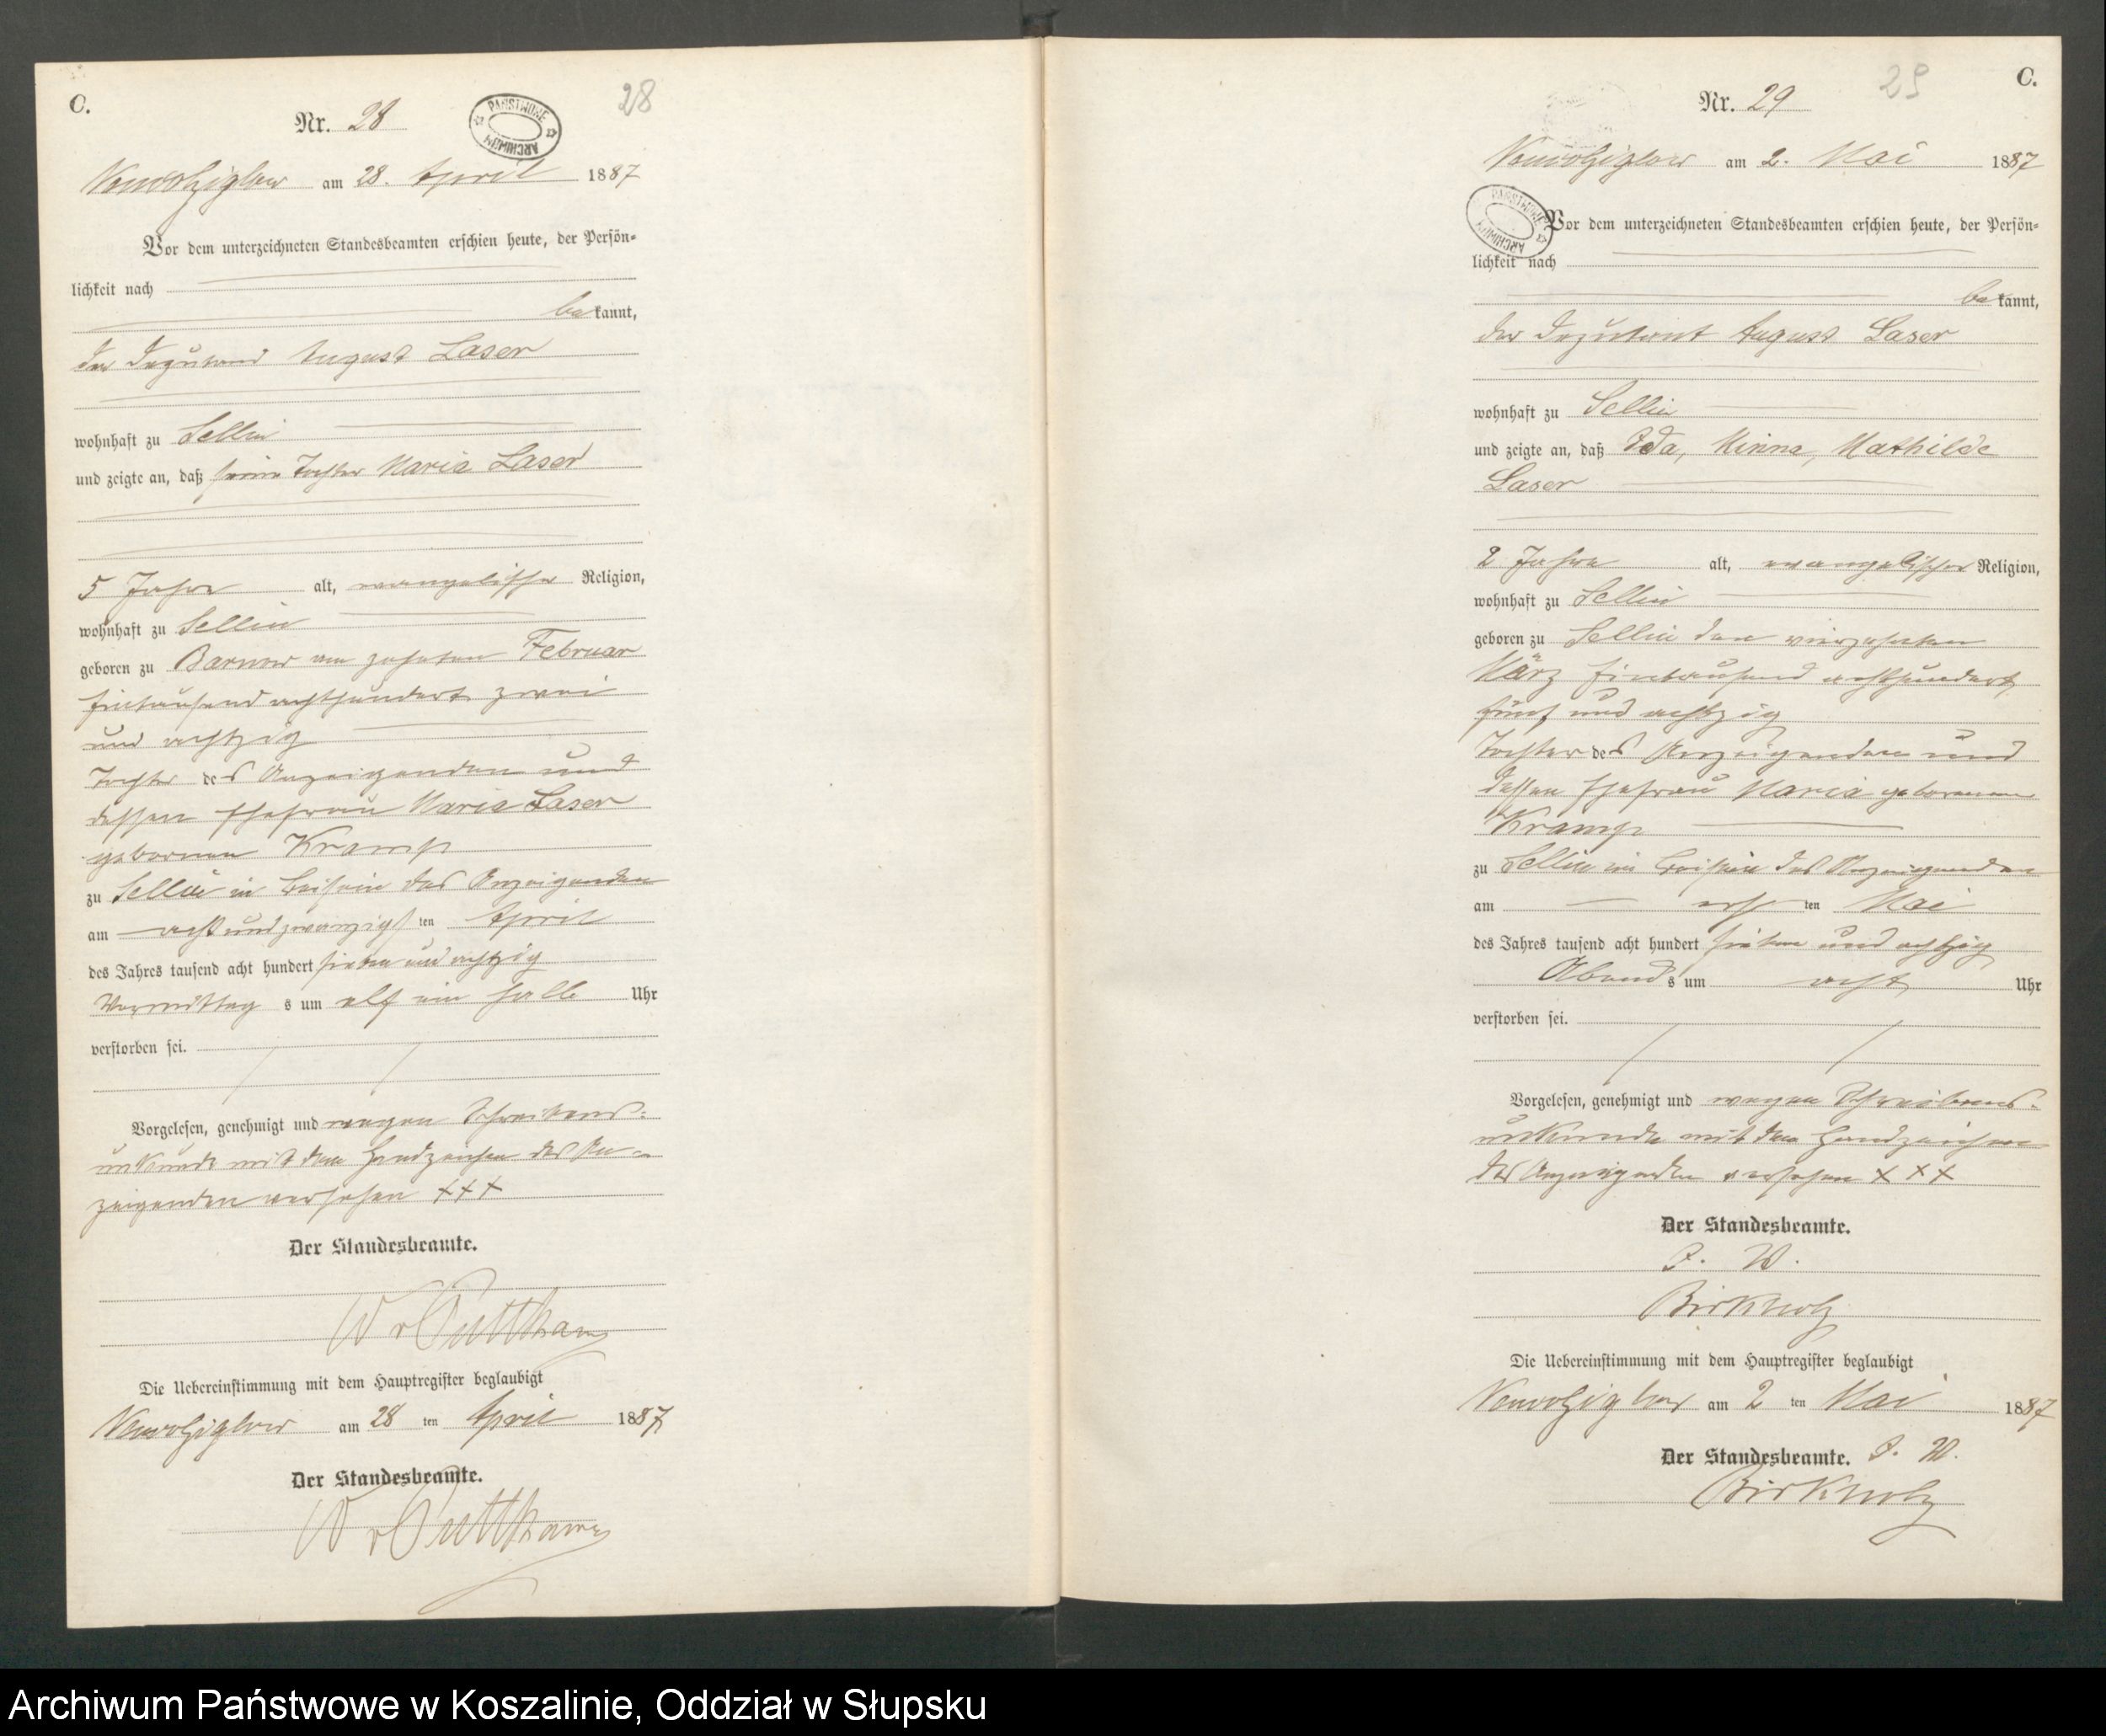 C.
Nr. 28
28
PAŃSTWOWE ARCHIWUM
am 28. April 1887
Vor dem unterzeichneten Standesbeamten erschien heute, der Persön-
lichkeit nach
bekannt,
der August Laser
wohnhaft zu Sellin
und zeigte an, daß seine Tochter Maria Laser
5 Jahre alt, evangelischer Religion,
wohnhaft zu Sellin
geboren zu Barnow am zehnten Februar
Eintausend achthundert zwei
und achtzig
Tochter des Anzeigenden und
dessen Ehefrau Maria Laser
geborenen Kramp
zu Sellin in Beisein des Anzeigenden
am acht und zwanzigsten April
des Jahres tausend acht hundert sieben und achtzig
Vormittags um elf ein halb Uhr
verstorben sei.
Vorgelesen, genehmigt und wegen Schreibens-
unkunde mit dem Handzeichen des An-
zeigenden versehen +++
Der Standesbeamte.
W v Puttkamer
Die Uebereinstimmung mit dem Hauptregister beglaubigt
am 28 ten April 1887
Der Standesbeamte.
W v Puttkamer
C.
Nr. 29
29
am 2. Mai 1887
PAŃSTWOWE ARCHIWUM
Vor dem unterzeichneten Standesbeamten erschien heute, der Persön-
lichkeit nach
bekannt,
der Deputant August Laser
wohnhaft zu Sellin
und zeigte an, daß Ida, Minna, Mathilde
Laser
2 Jahre alt, evangelischer Religion,
wohnhaft zu Sellin
geboren zu Sellin den vierzehnten
März Eintausend achthundert
fünf und achtzig
Tochter des Anzeigenden und
dessen Ehefrau Maria geborenen
Kramp
zu Sellin im Beisein des Anzeigenden
am ersten Mai
des Jahres tausend acht hundert sieben und achtzig
Abends um acht Uhr
verstorben sei.
Vorgelesen, genehmigt und wegen Schreibens-
unkunde mit dem Handzeichen
des Anzeigenden versehen + + +
Der Standesbeamte.
J. V.
Birkholz
Die Uebereinstimmung mit dem Hauptregister beglaubigt
am 2 ten Mai 1887
Der Standesbeamte. J. V.
Birkholz
Archiwum Państwowe w Koszalinie, Oddział w Słupsku